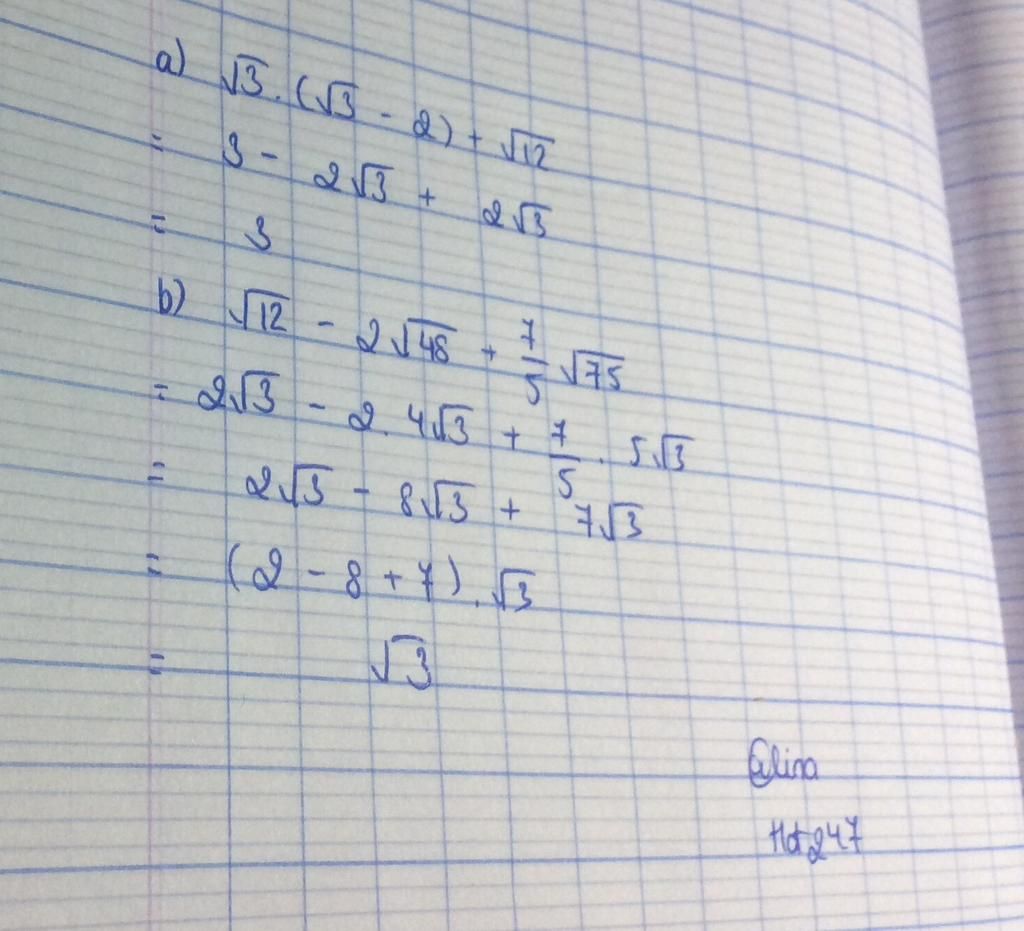 a) √3 . (√3 - 2) + √12
= 3 - 2√3 + 2√3
= 3
b) √12 - 2√48 + 7/5 √75
= 2√3 - 2. 4√3 + 7/5 . 5√3
= 2√3 - 8√3 + 7√3
= (2 - 8 + 7) . √3
= √3
@lina
Hd247